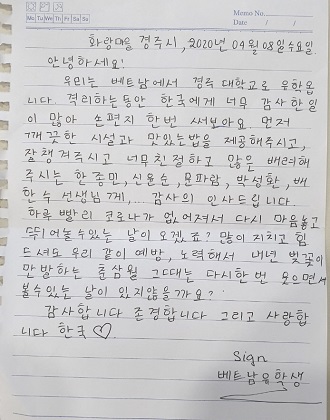 Memo No.
Mo Tu We Th Fr Sa Su
Date / /
화랑마을 경주시, 2020년 04월 08일 수요일
안녕하세요!
우리는 베트남에서 경주 대학교로 유학옵
니다. 격리하는동안 한국에게 너무 감사한일
이 많아 손편지 한번 써보아요. 먼저
깨끗한 시설과 맛있는밥을 제공해주시고,
잘챙겨주시고 너무친절하고 많은 배려해
주시는 한종민, 신윤순, 문파람, 박성환, 배
한수 선생님께,... 감사의 인사드립니다.
하루 빨리 코로나가 없어져서 다시 마음놓고
뛰어놀수있는 날이 오겠죠? 많이 지치고 힘
드셔도 우리 같이 예방, 노력해서 내년 벚꽃이
만발하는 춘삼월 그대는 다시한번 웃으면서
볼수있는 날이 있지않을까요?
감사합니다 존경합니다 그리고 사랑합
니다 한국♡
Sign
베트남유학생